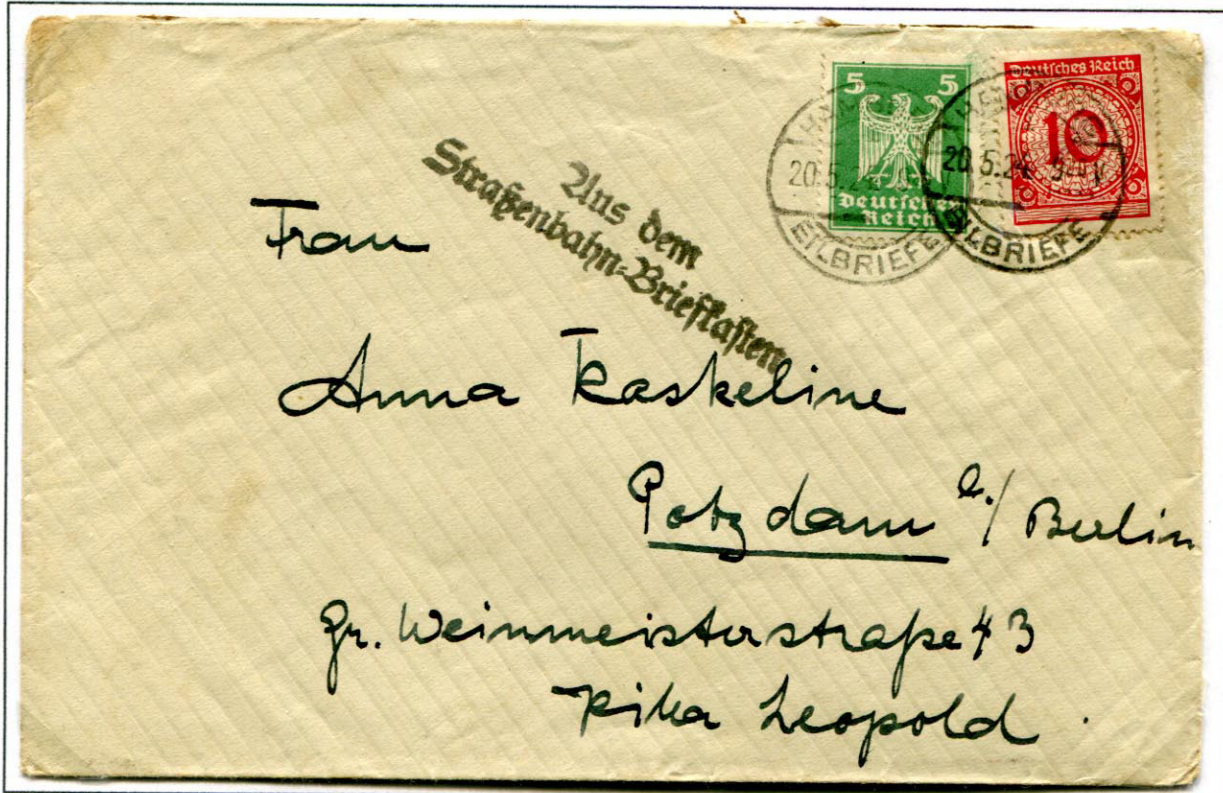 5 5
Deutsches
Reich
Deutsches Reich
10
20.5.24
EILBRIEFE
20.5.24
EILBRIEFE
Aus dem
Straßenbahn-Briefkasten
Frau
Anna Kaskeline
Potzdam b./Berlin
Gr. Weinmeisterstraße 43
Leopold